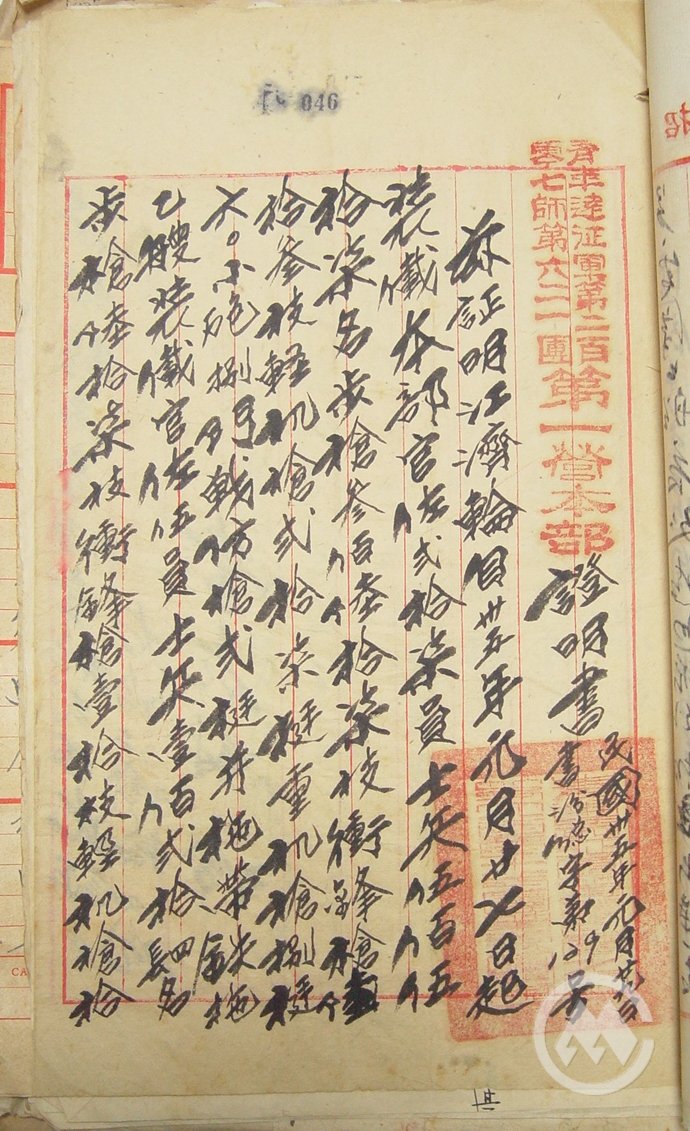 046
青年遠征軍第二百
零七師第六二一團第一營本部
證明書
民國卅五年元月廿
書 字第129号
茲証明江濟輪自卅五年元月廿 日起
裝儎本部官佐弍拾柒員士兵伍百伍
拾柒名步槍叁佰 拾柒枝衝鋒槍
拾叁枝輕机槍弍拾柒挺重机槍捌挺
六〇小砲捌門戰防槍弍挺并拖帶鉄拖
乙艘裝儎官佐伍員士兵壹百弍拾四名
步槍陸拾柒枝衝鋒槍壹拾枝輕机槍拾